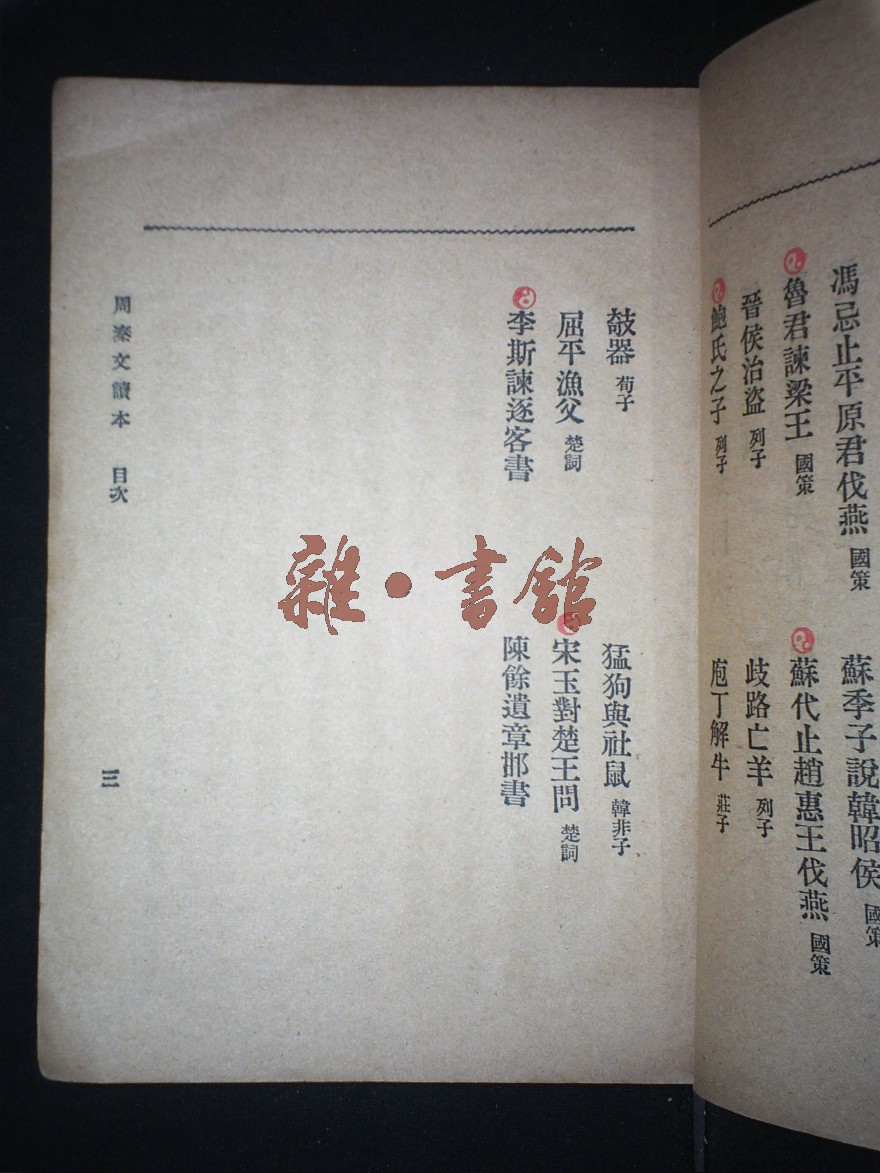 馮忌止平原君伐燕 國策
蘇季子說韓昭侯 國策
魯君諫梁王 國策
蘇代止趙惠王伐燕 國策
晉侯治盜 列子
歧路亡羊 列子
鮑氏之子 列子
庖丁解牛 莊子
攲器 荀子
猛狗與社鼠 韓非子
屈平漁父 楚詞
宋玉對楚王問 楚詞
李斯諫逐客書
陳餘遺章邯書
周秦文讀本 目次
三
雜·書館